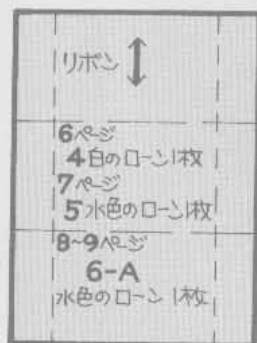 リボン
6ページ
4白のローン1枚
7ページ
5水色のローン1枚
8~9ページ
6-A
水色のローン1枚